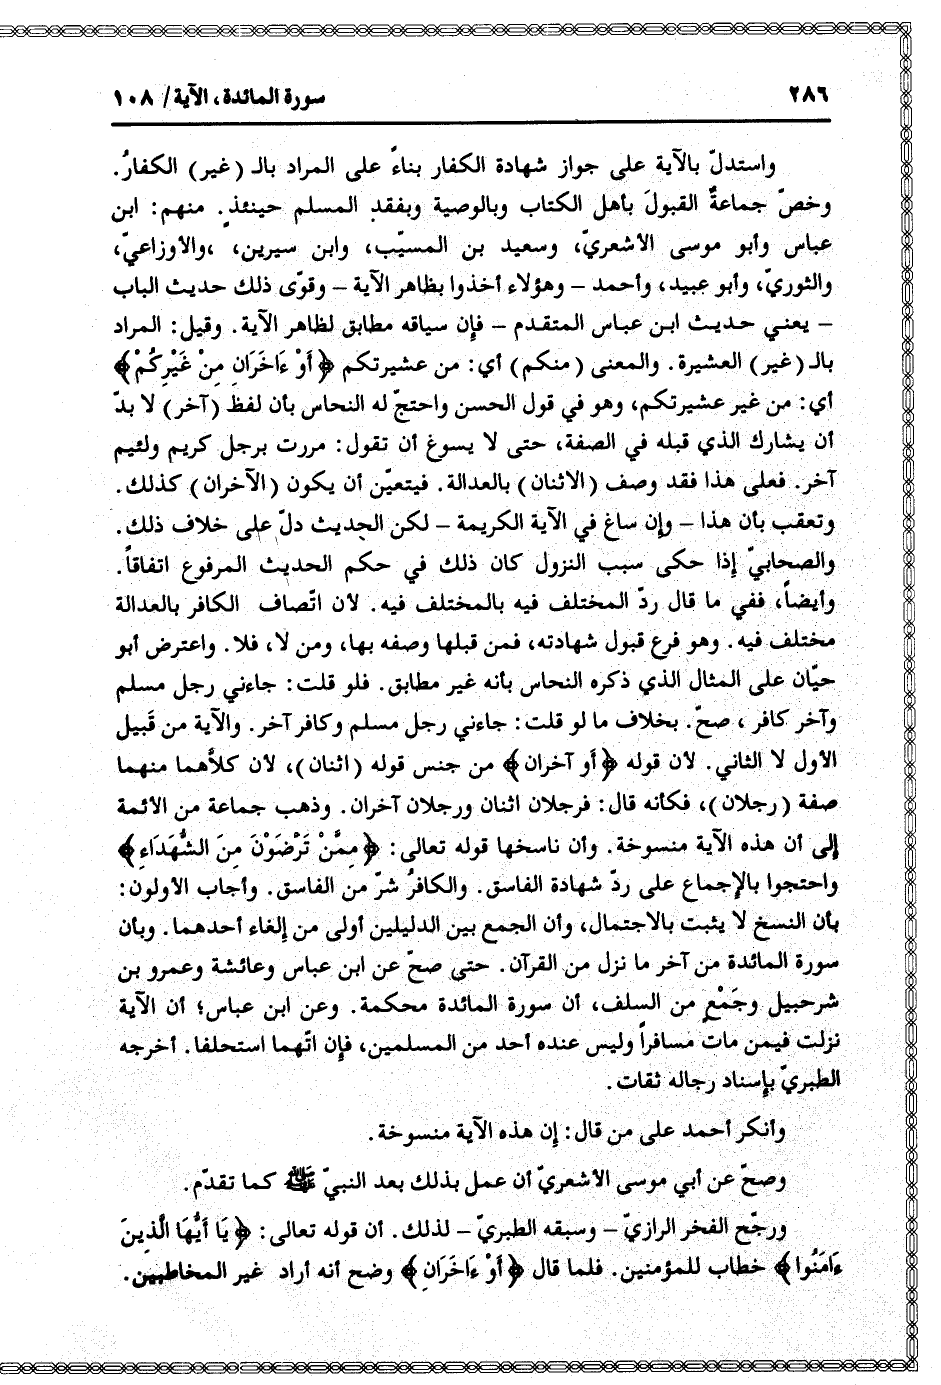 ٢٨٦ سورة المائدة، الآية/ ١٠٨
واستدلّ بالآية على جواز شهادة الكفار بناءً على المراد بالـ (غير) الكفارُ.
وخصّ جماعةٌ القبولَ بأهل الكتاب وبالوصية وبفقد المسلم حينئذٍ. منهم: ابن
عباس وأبو موسى الأشعريّ، وسعيد بن المسيّب، وابن سيرين، ،والأوزاعيّ،
والثوريّ، وأبو عبيد، وأحمد – وهؤلاء أخذوا بظاهر الآية – وقوّى ذلك حديث الباب
– يعني حديث ابن عباس المتقدم – فإن سياقه مطابق لظاهر الآية. وقيل: المراد
بالـ (غير) العشيرة. والمعنى (منكم) أي: من عشيرتكم ﴿أَوْ ءَاخَرَانِ مِنْ غَيْرِكُمْ﴾
أي: من غير عشيرتكم، وهو في قول الحسن واحتجّ له النحاس بأن لفظ (آخر) لا بدّ
أن يشارك الذي قبله في الصفة، حتى لا يسوغ أن تقول: مررت برجل كريم ولئيم
آخر. فعلى هذا فقد وصف (الاثنان) بالعدالة. فيتعيّن أن يكون (الآخران) كذلك.
وتعقب بأن هذا – وإن ساغ في الآية الكريمة – لكن الحديث دلّ على خلاف ذلك.
والصحابيّ إذا حكى سبب النزول كان ذلك في حكم الحديث المرفوع اتفاقاً.
وأيضاً، ففي ما قال ردّ المختلف فيه بالمختلف فيه. لأن اتّصاف الكافر بالعدالة
مختلف فيه. وهو فرع قبول شهادته، فمن قبلها وصفه بها، ومن لا، فلا. واعترض أبو
حيّان على المثال الذي ذكره النحاس بأنه غير مطابق. فلو قلت: جاءني رجل مسلم
وآخر كافر ، صحّ. بخلاف ما لو قلت: جاءني رجل مسلم وكافر آخر. والآية من قَبيل
الأول لا الثاني. لأن قوله ﴿أو آخران﴾ من جنس قوله (اثنان)، لأن كلاًهما منهما
صفة (رجلان)، فكأنه قال: فرجلان اثنان ورجلان آخران. وذهب جماعة من الأئمة
إلى أن هذه الآية منسوخة. وأن ناسخها قوله تعالى: ﴿مِمَّنْ تَرْضَوْنَ مِنَ الشُّهَدَاءِ﴾
واحتجوا بالإجماع على ردّ شهادة الفاسق. والكافرُ شرّ من الفاسق. وأجاب الأولون:
بأن النسخ لا يثبت بالاحتمال، وأن الجمع بين الدليلين أولى من إلغاء أحدهما. وبأن
سورة المائدة من آخر ما نزل من القرآن. حتى صحّ عن ابن عباس وعائشة وعمرو بن
شرحبيل وجَمْعٍ من السلف، أن سورة المائدة محكمة. وعن ابن عباس؛ أن الآية
نزلت فيمن مات مسافراً وليس عنده أحد من المسلمين، فإن اتّهما استحلفا. أخرجه
الطبريّ بإسناد رجاله ثقات.
وأنكر أحمد على من قال: إن هذه الآية منسوخة.
وصحّ عن أبي موسى الأشعريّ أن عمل بذلك بعد النبيّ ﷺ كما تقدّم.
ورجّح الفخر الرازيّ – وسبقه الطبريّ – لذلك. أن قوله تعالى: ﴿يَا أَيُّهَا الَّذِينَ
ءَامَنُوا﴾ خطاب للمؤمنين. فلما قال ﴿أَوْ ءَاخَرَانِ﴾ وضح أنه أراد غير المخاطبين.